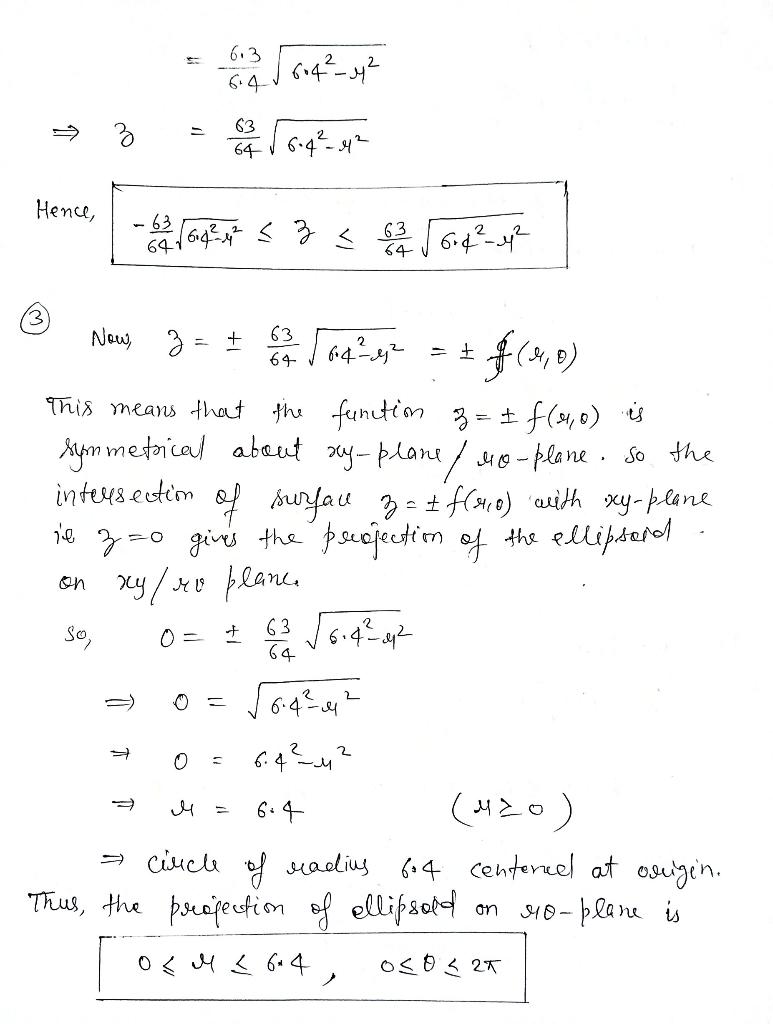 = 6.3/6.4 √(6.4² - r²)
⇒ z = 63/64 √(6.4² - r²)
Hence, -63/64 √(6.4² - r²) ≤ z ≤ 63/64 √(6.4² - r²)
③ Now, z = ± 63/64 √(6.4² - r²) = ± f(r, θ)
This means that the function z = ± f(r, θ) is
symmetrical about xy-plane / rθ-plane. so the
intersection of surface z = ± f(r, θ) with xy-plane
ie z = 0 gives the projection of the ellipsoid
on xy/rθ plane.
So, 0 = ± 63/64 √(6.4² - r²)
⇒ 0 = √(6.4² - r²)
⇒ 0 = 6.4² - r²
⇒ r = 6.4 (r ≥ 0)
⇒ circle of radius 6.4 centered at origin.
Thus, the projection of ellipsoid on rθ-plane is
0 ≤ r ≤ 6.4, 0 ≤ θ ≤ 2π